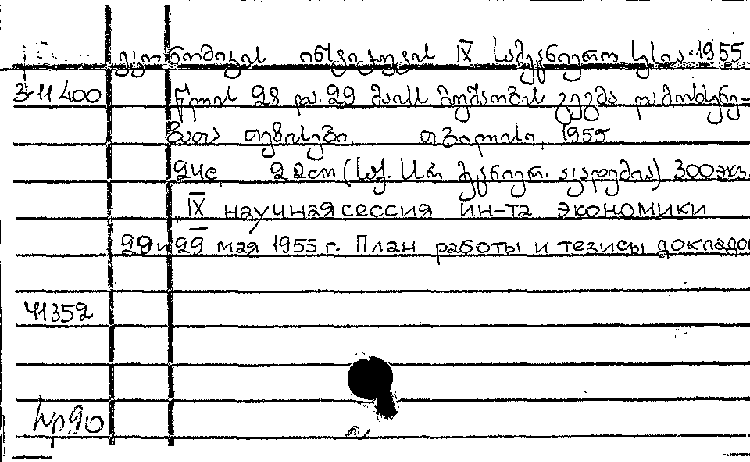 ეკონომიკის ინსტიტუტის IX სამეცნიერო სესია 1955
წლის 28 და 29 მაისს მუშაობის გეგმა და მოხსენე-
ბათა თეზისები. თბილისი, 1955
24с. 22cm (საქ. სსრ მეცნიერ. აკადემია) 300 экз.
IX научная сессия ин-та экономики
29 мая 1955 г. План работы и тезисы докладо
41352